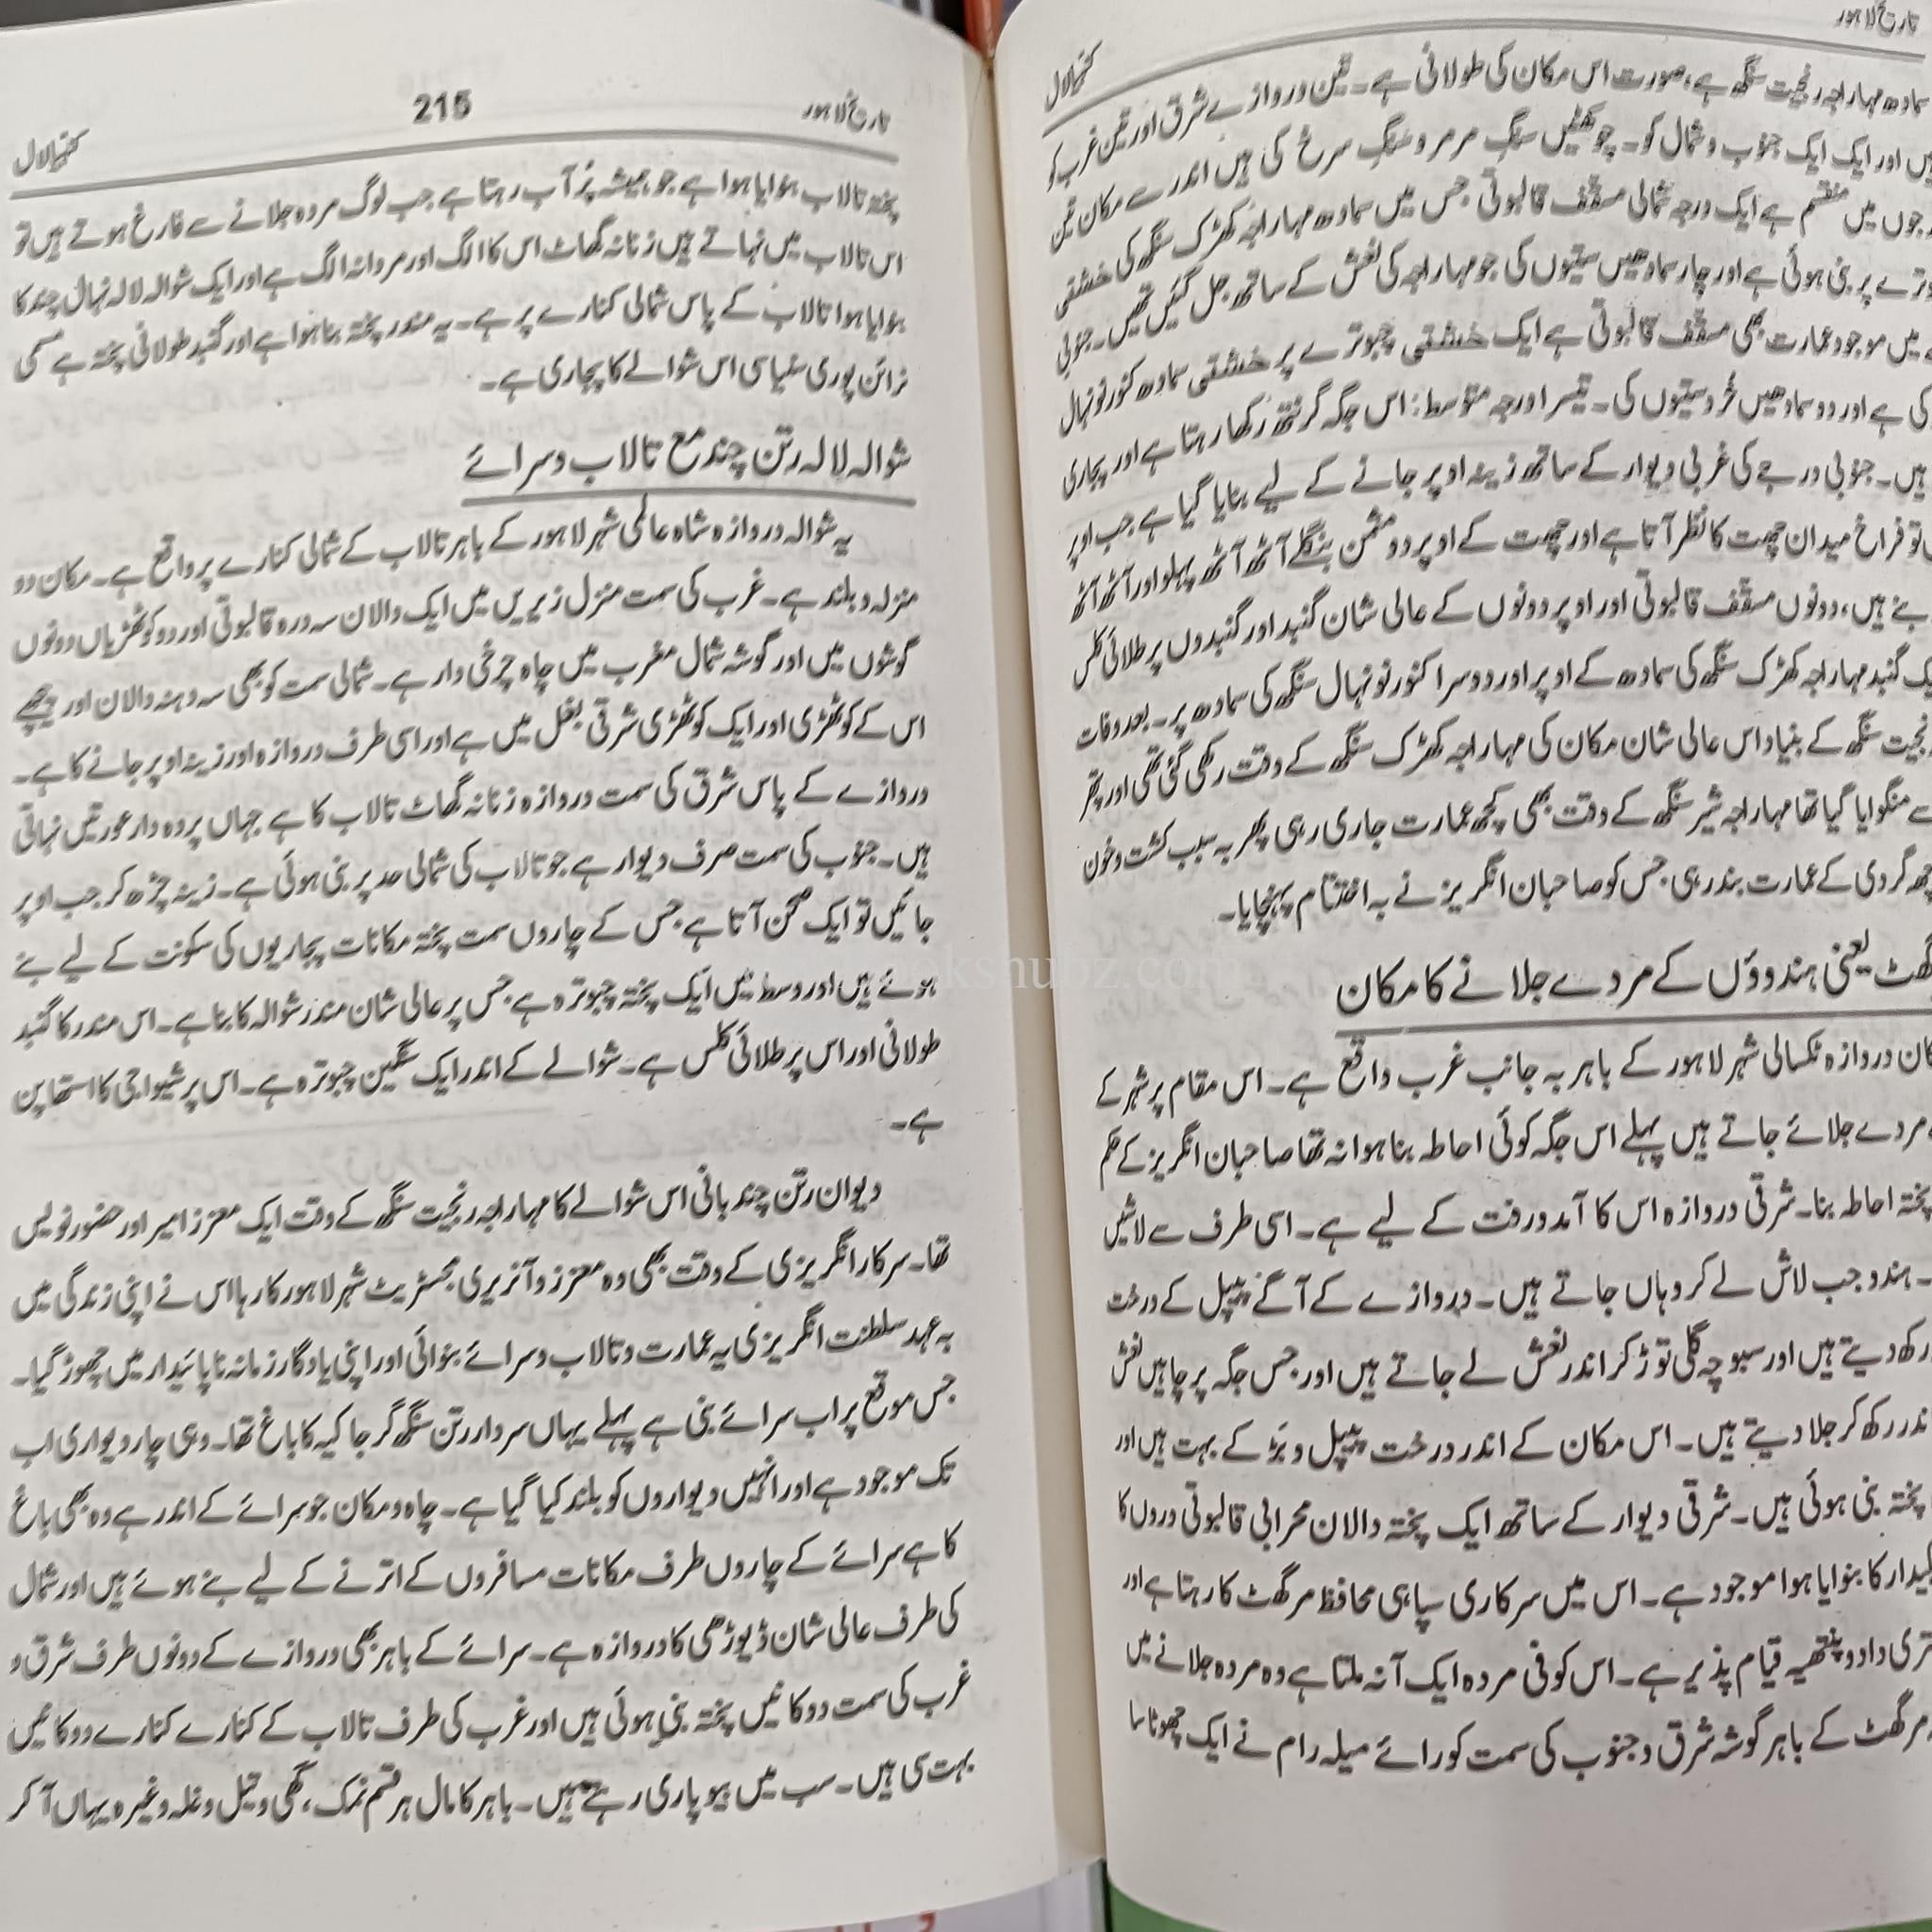 تاریخ لاہور
کنہیا لال
سادھ مہاراجہ رنجیت سنگھ ہے، صورت اس مکان کی طولانی ہے۔ تین دروازے شرق اور تین غرب کو
اور ایک ایک جنوب و شمال کو۔ چوکھٹیں سنگِ مرمر و سنگِ سرخ کی ہیں اندر سے مکان تین
میں منقسم ہے ایک درجہ شمالی مسقّف قالبوتی جس میں سمادھ مہاراجہ کھڑک سنگھ کی خشتی
پر بنی ہوئی ہے اور چار سمادھیں ستیوں کی جو مہاراجہ کی نعش کے ساتھ جل گئیں تھیں۔ جنوبی
میں موجود عمارت بھی مسقّف قالبوتی ہے ایک خشتی چبوترے پر خشتی سمادھ کنور نونہال
کی ہے اور دو سمادھیں خُرد ستیوں کی۔ تیسرا درجہ متوسط: اس جگہ گرنتھ رکھا رہتا ہے اور پجاری
ہیں۔ جنوبی درجے کی غربی دیوار کے ساتھ زینہ اوپر جانے کے لیے بنایا گیا ہے جب اوپر
تو فراخ میدان چھت کا نظر آتا ہے اور چھت کے اوپر دو مثمن بنگلے آٹھ آٹھ پہلو اور آٹھ آٹھ
بنے ہیں، دونوں مسقّف قالبوتی اور اوپر دونوں کے عالی شان گنبد اور گنبدوں پر طلائی کلس
گنبد مہاراجہ کھڑک سنگھ کی سمادھ کے اوپر اور دوسرا کنور نونہال سنگھ کی سمادھ پر۔ بعد وفات
سنگھ کے بنیاد اس عالی شان مکان کی مہاراجہ کھڑک سنگھ کے وقت رکھی گئی تھی اور پتھر
سے منگوایا گیا تھا مہاراجہ شیر سنگھ کے وقت بھی کچھ عمارت جاری رہی پھر بہ سبب کشت و خون
گردی کے عمارت بند رہی جس کو صاحبان انگریز نے بہ اختتام پہنچایا۔
یعنی ہندوؤں کے مردے جلانے کا مکان
دروازہ ٹکسالی شہر لاہور کے باہر بہ جانب غرب واقع ہے۔ اس مقام پر شہر کے
مردے جلائے جاتے ہیں پہلے اس جگہ کوئی احاطہ بنا ہوا نہ تھا صاحبان انگریز کے حکم
پختہ احاطہ بنا۔ شرقی دروازہ اس کا آمدورفت کے لیے ہے۔ اسی طرف سے لاشیں
ہندو جب لاش لے کر وہاں جاتے ہیں۔ دروازے کے آگے پیپل کے درخت
رکھ دیتے ہیں اور سبوچہ گلی توڑ کر اندر نعش لے جاتے ہیں اور جس جگہ پر چاہیں نعش
رکھ کر جلا دیتے ہیں۔ اس مکان کے اندر درخت پیپل و بَڑ کے بہت ہیں اور
پختہ بنی ہوئی ہیں۔ شرقی دیوار کے ساتھ ایک پختہ دالان محرابی قالبوتی دروں کا
کا بنوایا ہوا موجود ہے۔ اس میں سرکاری سپاہی محافظ مرگھٹ کا رہتا ہے اور
دادو پنتھیہ قیام پذیر ہے۔ اس کو فی مردہ ایک آنہ ملتا ہے وہ مردہ جلانے میں
مرگھٹ کے باہر گوشہ شرق و جنوب کی سمت کو رائے میلہ رام نے ایک چھوٹا سا
تاریخ لاہور
215
کنہیا لال
پختہ تالاب بنوایا ہوا ہے جو ہمیشہ پُر آب رہتا ہے جب لوگ مردہ جلانے سے فارغ ہوتے ہیں تو
اس تالاب میں نہاتے ہیں زنانہ گھاٹ اس کا الگ اور مردانہ الگ ہے اور ایک شوالہ لالہ نہال چند کا
بنوایا ہوا تالاب کے پاس شمالی کنارے پر ہے۔ یہ مندر پختہ بنا ہوا ہے اور گنبد طولانی پختہ ہے مسمی
نرائن پوری سنیاسی اس شوالے کا پجاری ہے۔
شوالہ لالہ رتن چند مع تالاب و سرائے
یہ شوالہ دروازہ شاہ عالمی شہر لاہور کے باہر تالاب کے شمالی کنارے پر واقع ہے۔ مکان دو
منزلہ و بلند ہے۔ غرب کی سمت منزل زیریں میں ایک دالان سہ درہ قالبوتی اور دو کوٹھڑیاں دونوں
گوشوں میں اور گوشہ شمال مغرب میں چاہ چرخی دار ہے۔ شمالی سمت کو بھی سہ دہنہ دالان اور پیچھے
اس کے کوٹھڑی اور ایک کوٹھڑی شرقی بغل میں ہے اور اسی طرف دروازہ اور زینہ اوپر جانے کا ہے۔
دروازے کے پاس شرق کی سمت دروازہ زنانہ گھاٹ تالاب کا ہے جہاں پردہ دار عورتیں نہاتی
ہیں۔ جنوب کی سمت صرف دیوار ہے جو تالاب کی شمالی حد پر بنی ہوئی ہے۔ زینہ چڑھ کر جب اوپر
جائیں تو ایک صحن آتا ہے جس کے چاروں سمت پختہ مکانات پجاریوں کی سکونت کے لیے بنے
ہوئے ہیں اور وسط میں ایک پختہ چبوترہ ہے جس پر عالی شان مندر شوالہ کا بنا ہے۔ اس مندر کا گنبد
طولانی اور اس پر طلائی کلس ہے۔ شوالے کے اندر ایک سنگین چبوترہ ہے۔ اس پر شیواجی کا استھاپن
ہے۔
دیوان رتن چند بانی اس شوالے کا مہاراجہ رنجیت سنگھ کے وقت ایک معزز امیر اور حضور نویس
تھا۔ سرکار انگریزی کے وقت بھی وہ معزز و آنریری مجسٹریٹ شہر لاہور کا رہا اس نے اپنی زندگی میں
بہ عہد سلطنت انگریزی یہ عمارت و تالاب و سرائے بنوائی اور اپنی یادگار زمانہ ناپائیدار میں چھوڑ گیا۔
جس موقع پر اب سرائے بنی ہے پہلے یہاں سردار رتن سنگھ گرجاکیہ کا باغ تھا۔ وہی چار دیواری اب
تک موجود ہے اور انہیں دیواروں کو بلند کیا گیا ہے۔ چاہ و مکان جو سرائے کے اندر ہے وہ بھی باغ
کا ہے سرائے کے چاروں طرف مکانات مسافروں کے اترنے کے لیے بنے ہوئے ہیں اور شمال
کی طرف عالی شان ڈیوڑھی کا دروازہ ہے۔ سرائے کے باہر بھی دروازے کے دونوں طرف شرق و
غرب کی سمت دوکانیں پختہ بنی ہوئی ہیں اور غرب کی طرف تالاب کے کنارے کنارے دوکانیں
بہت سی ہیں۔ سب میں بیوپاری رہتے ہیں۔ باہر کا مال ہر قسم نمک، گھی و تیل و غلہ وغیرہ یہاں آ کر